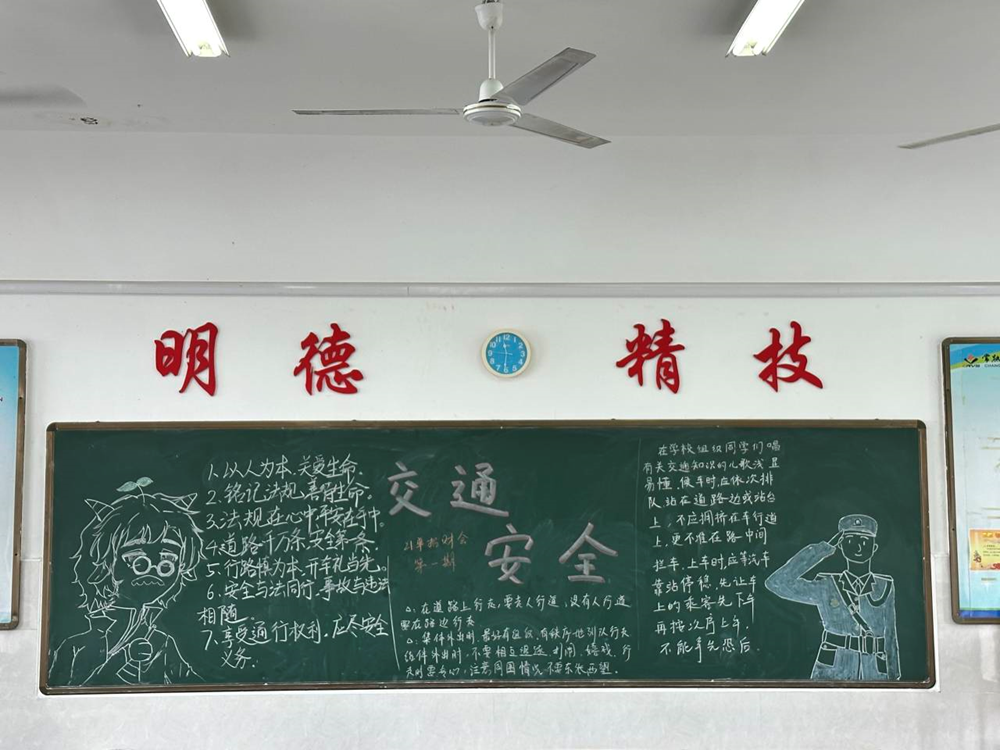 明 德 精 技
1.以人为本、关爱生命.
2.铭记法规,善待生命。
3.法规在心中,平安在手中.
4.道路千万条,安全第一条.
5.行路慢为本,开车礼当先。
6.安全与法同行,事故与违法
相随
7.享受通行权利,应尽安全
义务.
交通
安全
第一期
在道路上行走,要走人行道,没有人行道
要在路边行走
集体外出时,最好有组织,有秩序地列队行走
结伴外出时,不要相互追逐、打闹、嬉戏,行
走时要专心,注意周围情况,不要东张西望.
在学校组织同学们唱
有关交通知识的儿歌浅显
易懂,候车时,应依次排
队,站在道路边或站台
上,不应拥挤在车行道
上,更不准在路中间
拦车,上车时应等汽车
靠站停稳,先让车
上的乘客先下车
再按次序上车,
不能争先恐后.